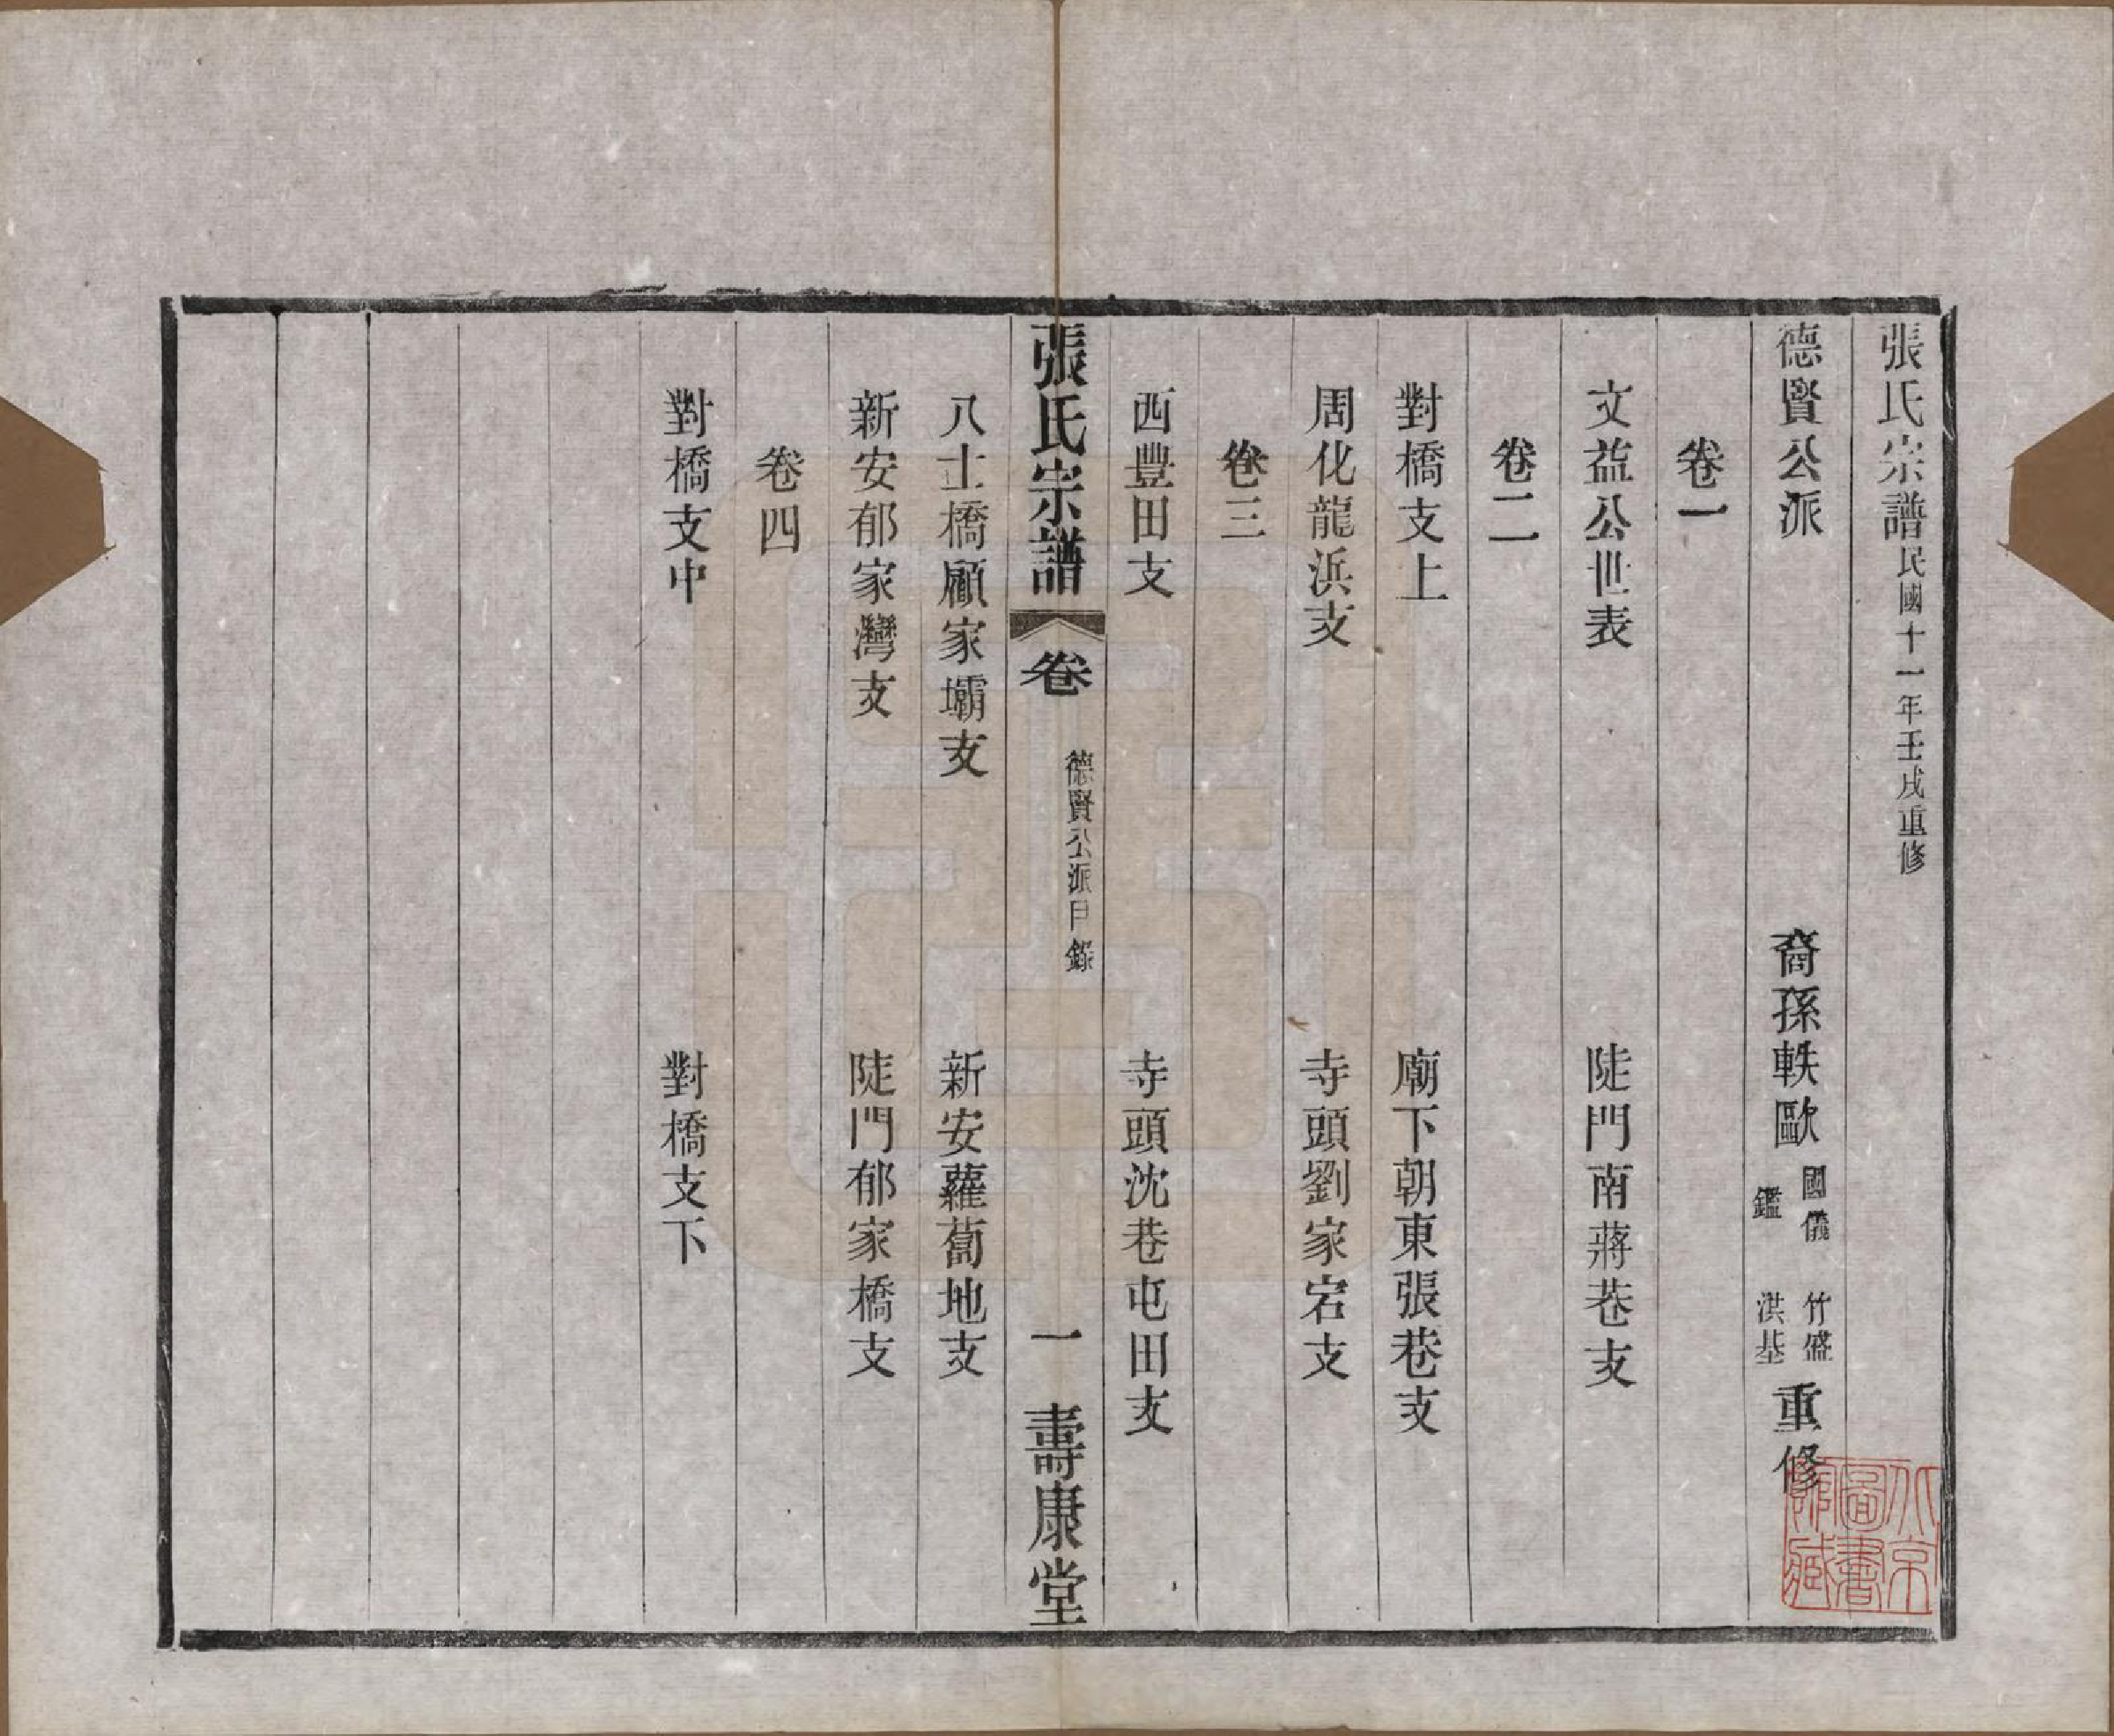 張氏宗譜民國十一年壬戌重修
德賢公派 裔孫軼歐 國儀 鑑 竹盛 洪基 重修
卷一
文益公世表 陡門南蔣巷支
卷二
對橋支上 廟下朝東張巷支
周化龍浜支 寺頭劉家宕支
卷三
西豐田支 寺頭沈巷屯田支
張氏宗譜 卷 德賢公派目錄 一 壽康堂
八士橋顧家壩支 新安蘿蔔地支
新安郁家灣支 陡門郁家橋支
卷四
對橋支中 對橋支下
北京圖書館藏